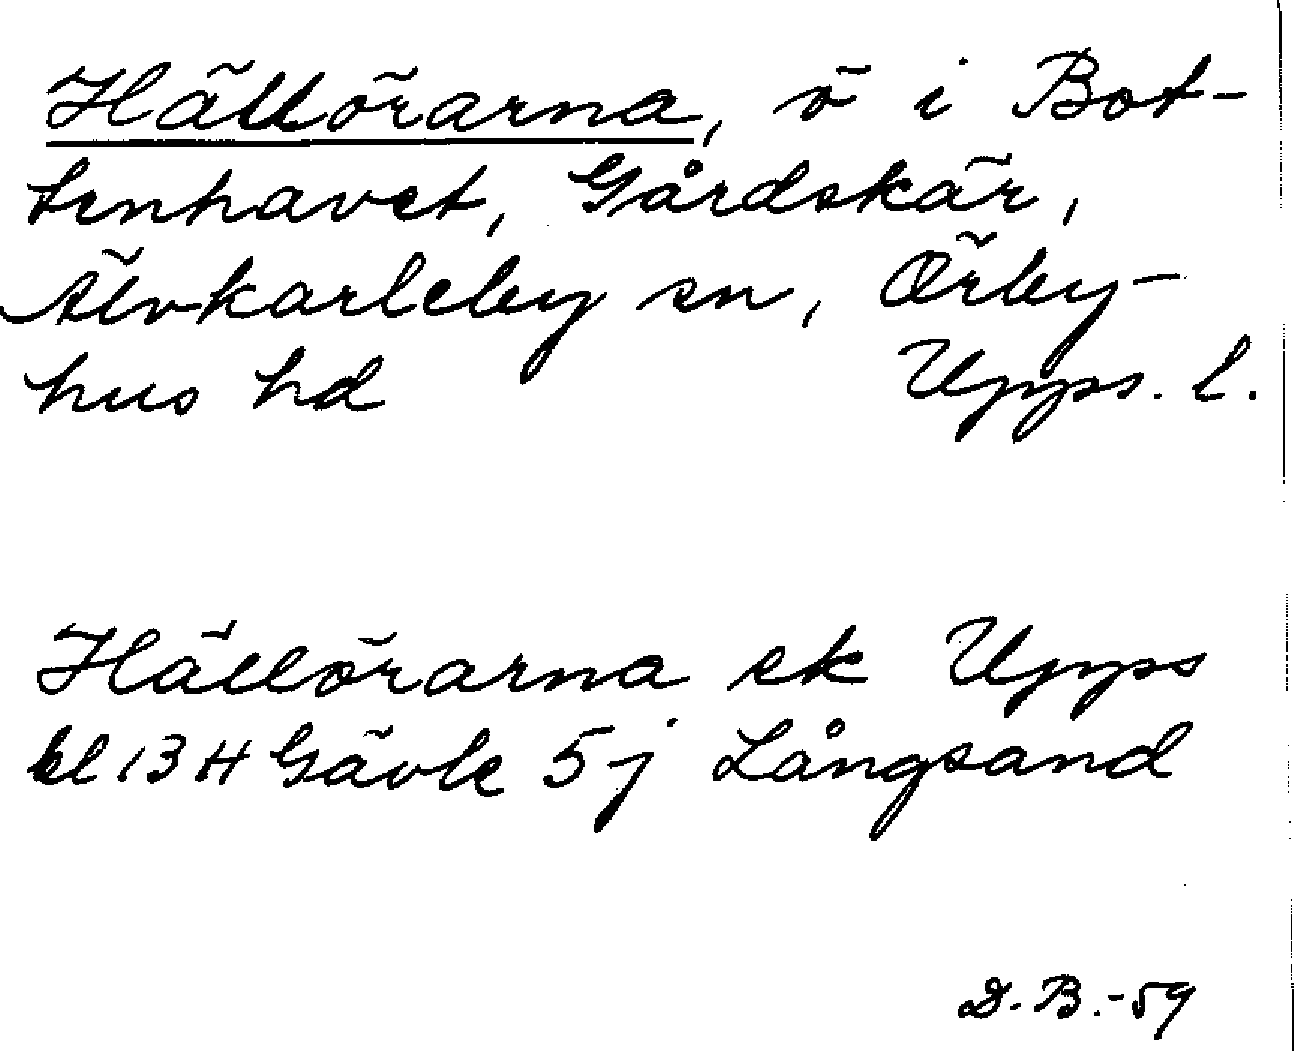 Hällörarna, ö i Bot-
tenhavet, Gårdskär,
Älvkarleby sn, Örby-
hus hd Upps. l.
Hällörarna ek Upps
bl 13 H Gävle 5 j Långsand
D. B. -59